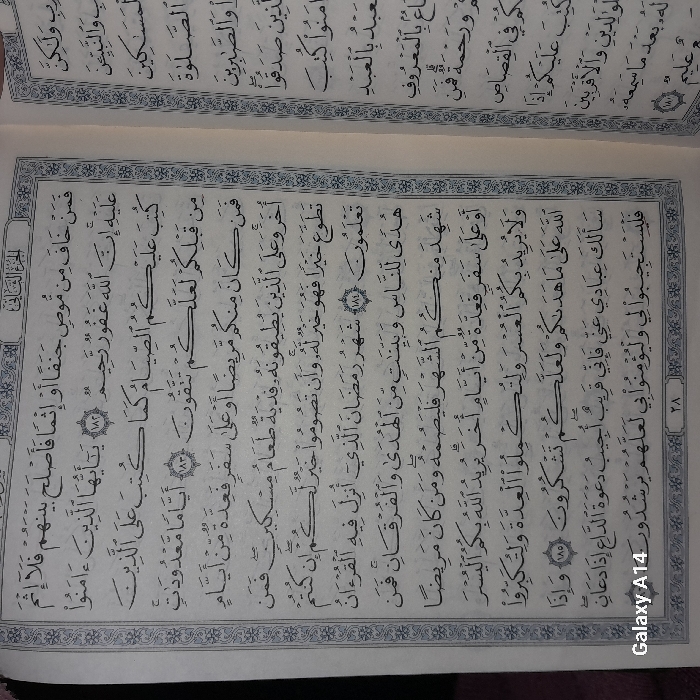 الجزء الثاني
فَمَنْ خَافَ مِن مُّوصٍ جَنَفًا أَوْ إِثْمًا فَأَصْلَحَ بَيْنَهُمْ فَلَآ إِثْمَ
عَلَيْهِ إِنَّ ٱللَّهَ غَفُورٌ رَّحِيمٌ ١٨٢ يَٰٓأَيُّهَا ٱلَّذِينَ ءَامَنُوا۟
كُتِبَ عَلَيْكُمُ ٱلصِّيَامُ كَمَا كُتِبَ عَلَى ٱلَّذِينَ
مِن قَبْلِكُمْ لَعَلَّكُمْ تَتَّقُونَ ١٨٣ أَيَّامًا مَّعْدُودَٰتٍ
فَمَن كَانَ مِنكُم مَّرِيضًا أَوْ عَلَىٰ سَفَرٍ فَعِدَّةٌ مِّنْ أَيَّامٍ
أُخَرَ وَعَلَى ٱلَّذِينَ يُطِيقُونَهُۥ فِدْيَةٌ طَعَامُ مِسْكِينٍ فَمَن
تَطَوَّعَ خَيْرًا فَهُوَ خَيْرٌ لَّهُۥ وَأَن تَصُومُوا۟ خَيْرٌ لَّكُمْ إِن كُنتُمْ
تَعْلَمُونَ ١٨٤ شَهْرُ رَمَضَانَ ٱلَّذِىٓ أُنزِلَ فِيهِ ٱلْقُرْءَانُ
هُدًى لِّلنَّاسِ وَبَيِّنَٰتٍ مِّنَ ٱلْهُدَىٰ وَٱلْفُرْقَانِ فَمَن
شَهِدَ مِنكُمُ ٱلشَّهْرَ فَلْيَصُمْهُ وَمَن كَانَ مَرِيضًا
أَوْ عَلَىٰ سَفَرٍ فَعِدَّةٌ مِّنْ أَيَّامٍ أُخَرَ يُرِيدُ ٱللَّهُ بِكُمُ ٱلْيُسْرَ
وَلَا يُرِيدُ بِكُمُ ٱلْعُسْرَ وَلِتُكْمِلُوا۟ ٱلْعِدَّةَ وَلِتُكَبِّرُوا۟
ٱللَّهَ عَلَىٰ مَا هَدَىٰكُمْ وَلَعَلَّكُمْ تَشْكُرُونَ ١٨٥ وَإِذَا
سَأَلَكَ عِبَادِى عَنِّى فَإِنِّى قَرِيبٌ أُجِيبُ دَعْوَةَ ٱلدَّاعِ إِذَا دَعَانِ
فَلْيَسْتَجِيبُوا۟ لِى وَلْيُؤْمِنُوا۟ بِى لَعَلَّهُمْ يَرْشُدُونَ
٢٨
وَلَٰكِنَّ
وَٱلنَّبِيِّۦنَ
ٱلصَّلَوٰةَ
وَٱلصَّٰبِرِينَ
صَدَقُوا۟
كُتِبَ
بِٱلْعَبْدِ
بِٱلْمَعْرُوفِ
وَرَحْمَةٌ فَمَنِ
فِى ٱلْقِصَاصِ
كُتِبَ عَلَيْكُمْ إِذَا
وَٱلْأَقْرَبِينَ
بَعْدَ مَا سَمِعَهُۥ
Galaxy A14